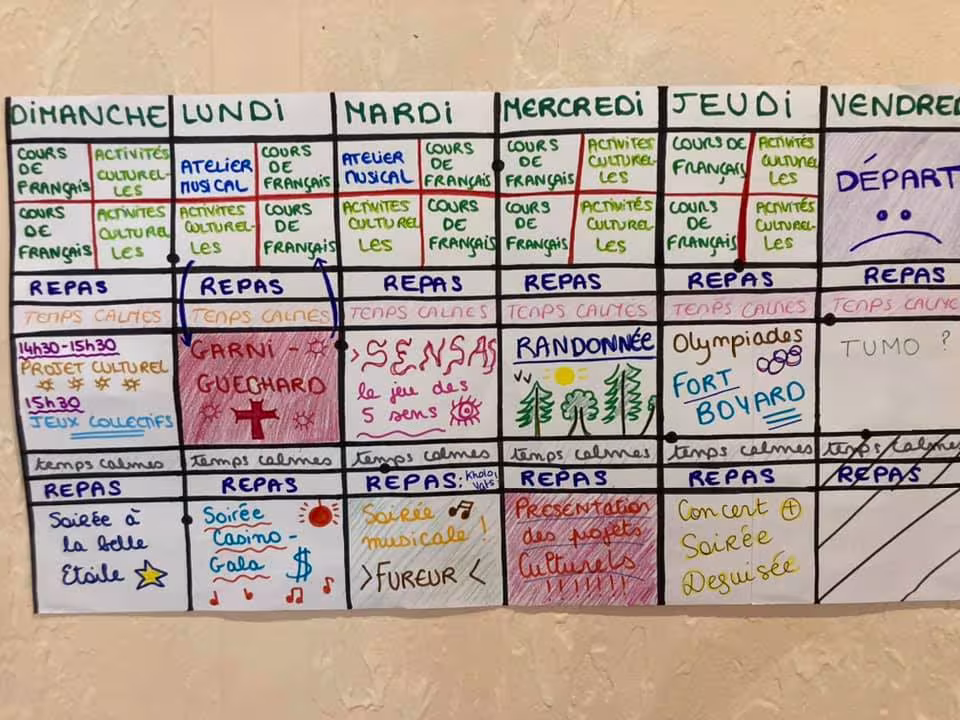 DIMANCHE
LUNDI
MARDI
MERCREDI
JEUDI
VENDRED
COURS
DE
FRANÇAIS
ACTIVITÉS
CULTUREL-
LES
ATELIER
MUSICAL
COURS
DE
FRANÇAIS
ATELIER
MUSICAL
COURS
DE
FRANÇAIS
COURS
DE
FRANÇAIS
ACTIVITÉS
CULTUREL-
LES
COURS DE
FRANÇAIS
ACTIVITÉS
CULTUREL
LES
DÉPART
COURS
DE
FRANÇAIS
ACTIVITÉS
CULTUREL
LES
ACTIVITES
CULTUREL-
LES
COURS
DE
FRANÇAIS
ACTIVITÉS
CULTUREL
LES
COURS
DE
FRANÇAIS
COURS
DE
FRANÇAIS
ACTIVITÉS
CULTUREL
LES
COURS
DE
FRANÇAIS
ACTIVITÉS
CULTUREL
LES
REPAS
REPAS
REPAS
REPAS
REPAS
REPAS
TEMPS CALMES
TEMPS CALMES
TEMPS CALMES
TEMPS CALMES
TEMPS CALMES
TEMPS CALME
14h30-15h30
PROJET CULTUREL
15h30
JEUX COLLECTIFS
GARNI -
GUEGHARD
> SENSAS
le jeu des
5 sens
RANDONNÉE
Olympiades
FORT
BOYARD
TUMO ?
temps calmes
temps calmes
temps calmes
temps calmes
temps calmes
temps calmes
REPAS
REPAS
REPAS: Kholo,
Vats
REPAS
REPAS
REPAS
Soirée à
la belle
Etoile
Soirée
Casino -
Gala $
Soirée
musicale !
>FUREUR <
PRÉSENTATION
des projets
Culturels
!!!!!!!
Concert +
Soirée
Deguisée